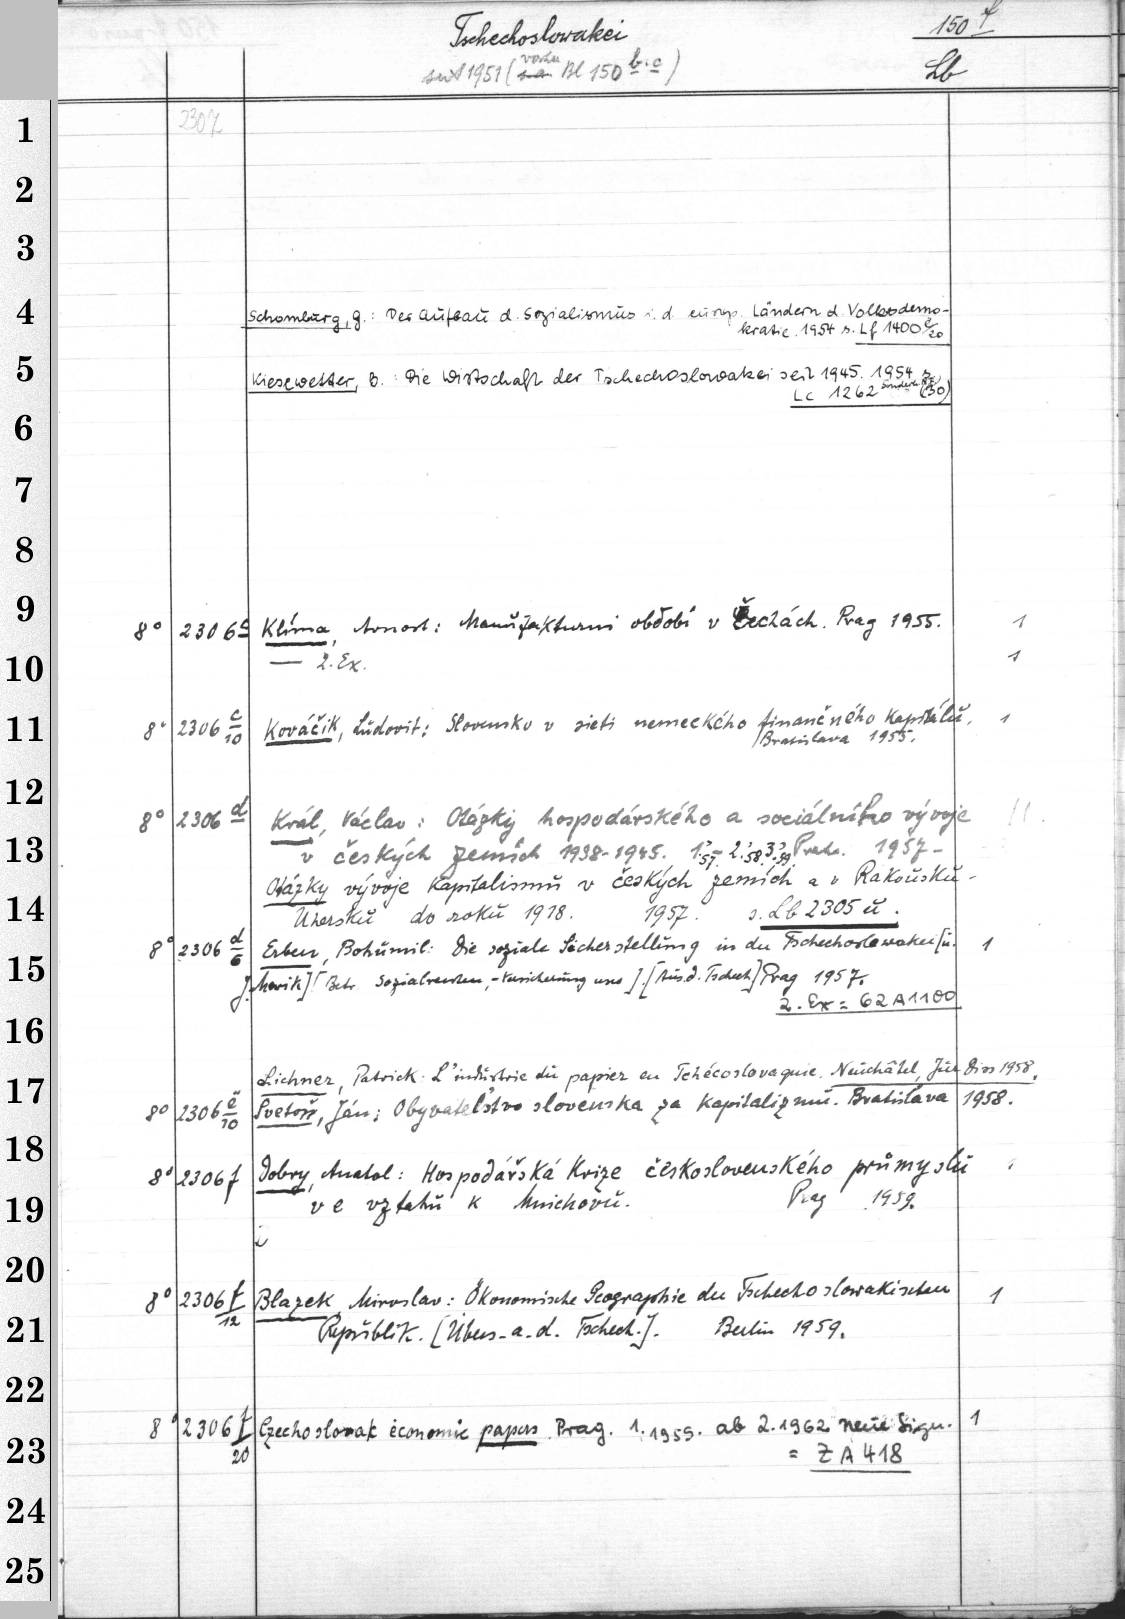 Tschechoslowakei
150 f
seit 1951 (vorher s. a. Bl 150 b.c)
Lb
2307
1
2
3
4
Schomburg, G.: Der Aufbau d. Sozialismus i. d. europ. Ländern d. Volksdemo-
kratie. 1954 s. Lf 1400 e/20
5
Kiesewetter, B.: Die Wirtschaft der Tschechoslowakei seit 1945. 1954 s.
Lc 1262 (30)
6
7
8
9
8° 2306 c Klíma, Arnost: Manufakturni období v Čechách. Prag 1955. 1
10
— 2. Ex. 1
11
8° 2306 c/10 Kováčik, Ľudovit: Slovensko v sieti nemeckého finančného kapitálu. 1
Bratislava 1955.
12
8° 2306 d Král, Václav: Otázky hospodárského a sociálního vývoje 11.
13
v českých zemích 1938-1945. 1.'57- 2.'58. 3.'59. Praha. 1957-
Otázky vývoje kapitalismu v českých zemích a v Rakousku-
14
Uhersku do roku 1918. 1957. s. Lb 2305 u.
8° 2306 d/6 Erben, Bohumil: Die soziale Sicherstellung in der Tschechoslowakei [u. 1
15
J. Mařík] [Betr. Sozialrenten, -Versicherung usw]. [Aus d. Tschech] Prag 1957.
2. Ex = 62 A 1100
16
17
Lichner, Patrick. L'industrie du papier en Tchécoslovaquie. Neuchâtel, Jur Diss 1958.
8° 2306 e/10 Svetoň, Ján; Obyvateľstvo slovenska za kapitalizmu. Bratislava 1958.
18
8° 2306 f Dobry, Anatol: Hospodářská Krize československého průmyslu
19
ve vztahu k Mnichovu. Prag 1959.
20
8° 2306 f/12 Blazek, Miroslav: Ökonomische Geographie der Tschechoslowakischen 1
21
Republik. [Übers. a. d. Tschech.]. Berlin 1959.
22
8° 2306 f/20 Czechoslovak economic papers. Prag. 1.1959. ab 2.1962 neue Sign. 1
23
= ZA 418
24
25